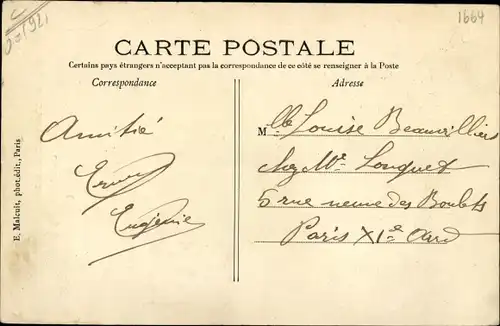 1664
CARTE POSTALE
Certains pays étrangers n'acceptant pas la correspondance de ce côté se renseigner à la Poste
Correspondance
Adresse
Amitié
Eugénie
Mlle Louise Beauvilliers
chez Mr Louquet
5 rue neuve des Boulets
Paris XIe Ard
E. Malcuit, phot.édit., Paris